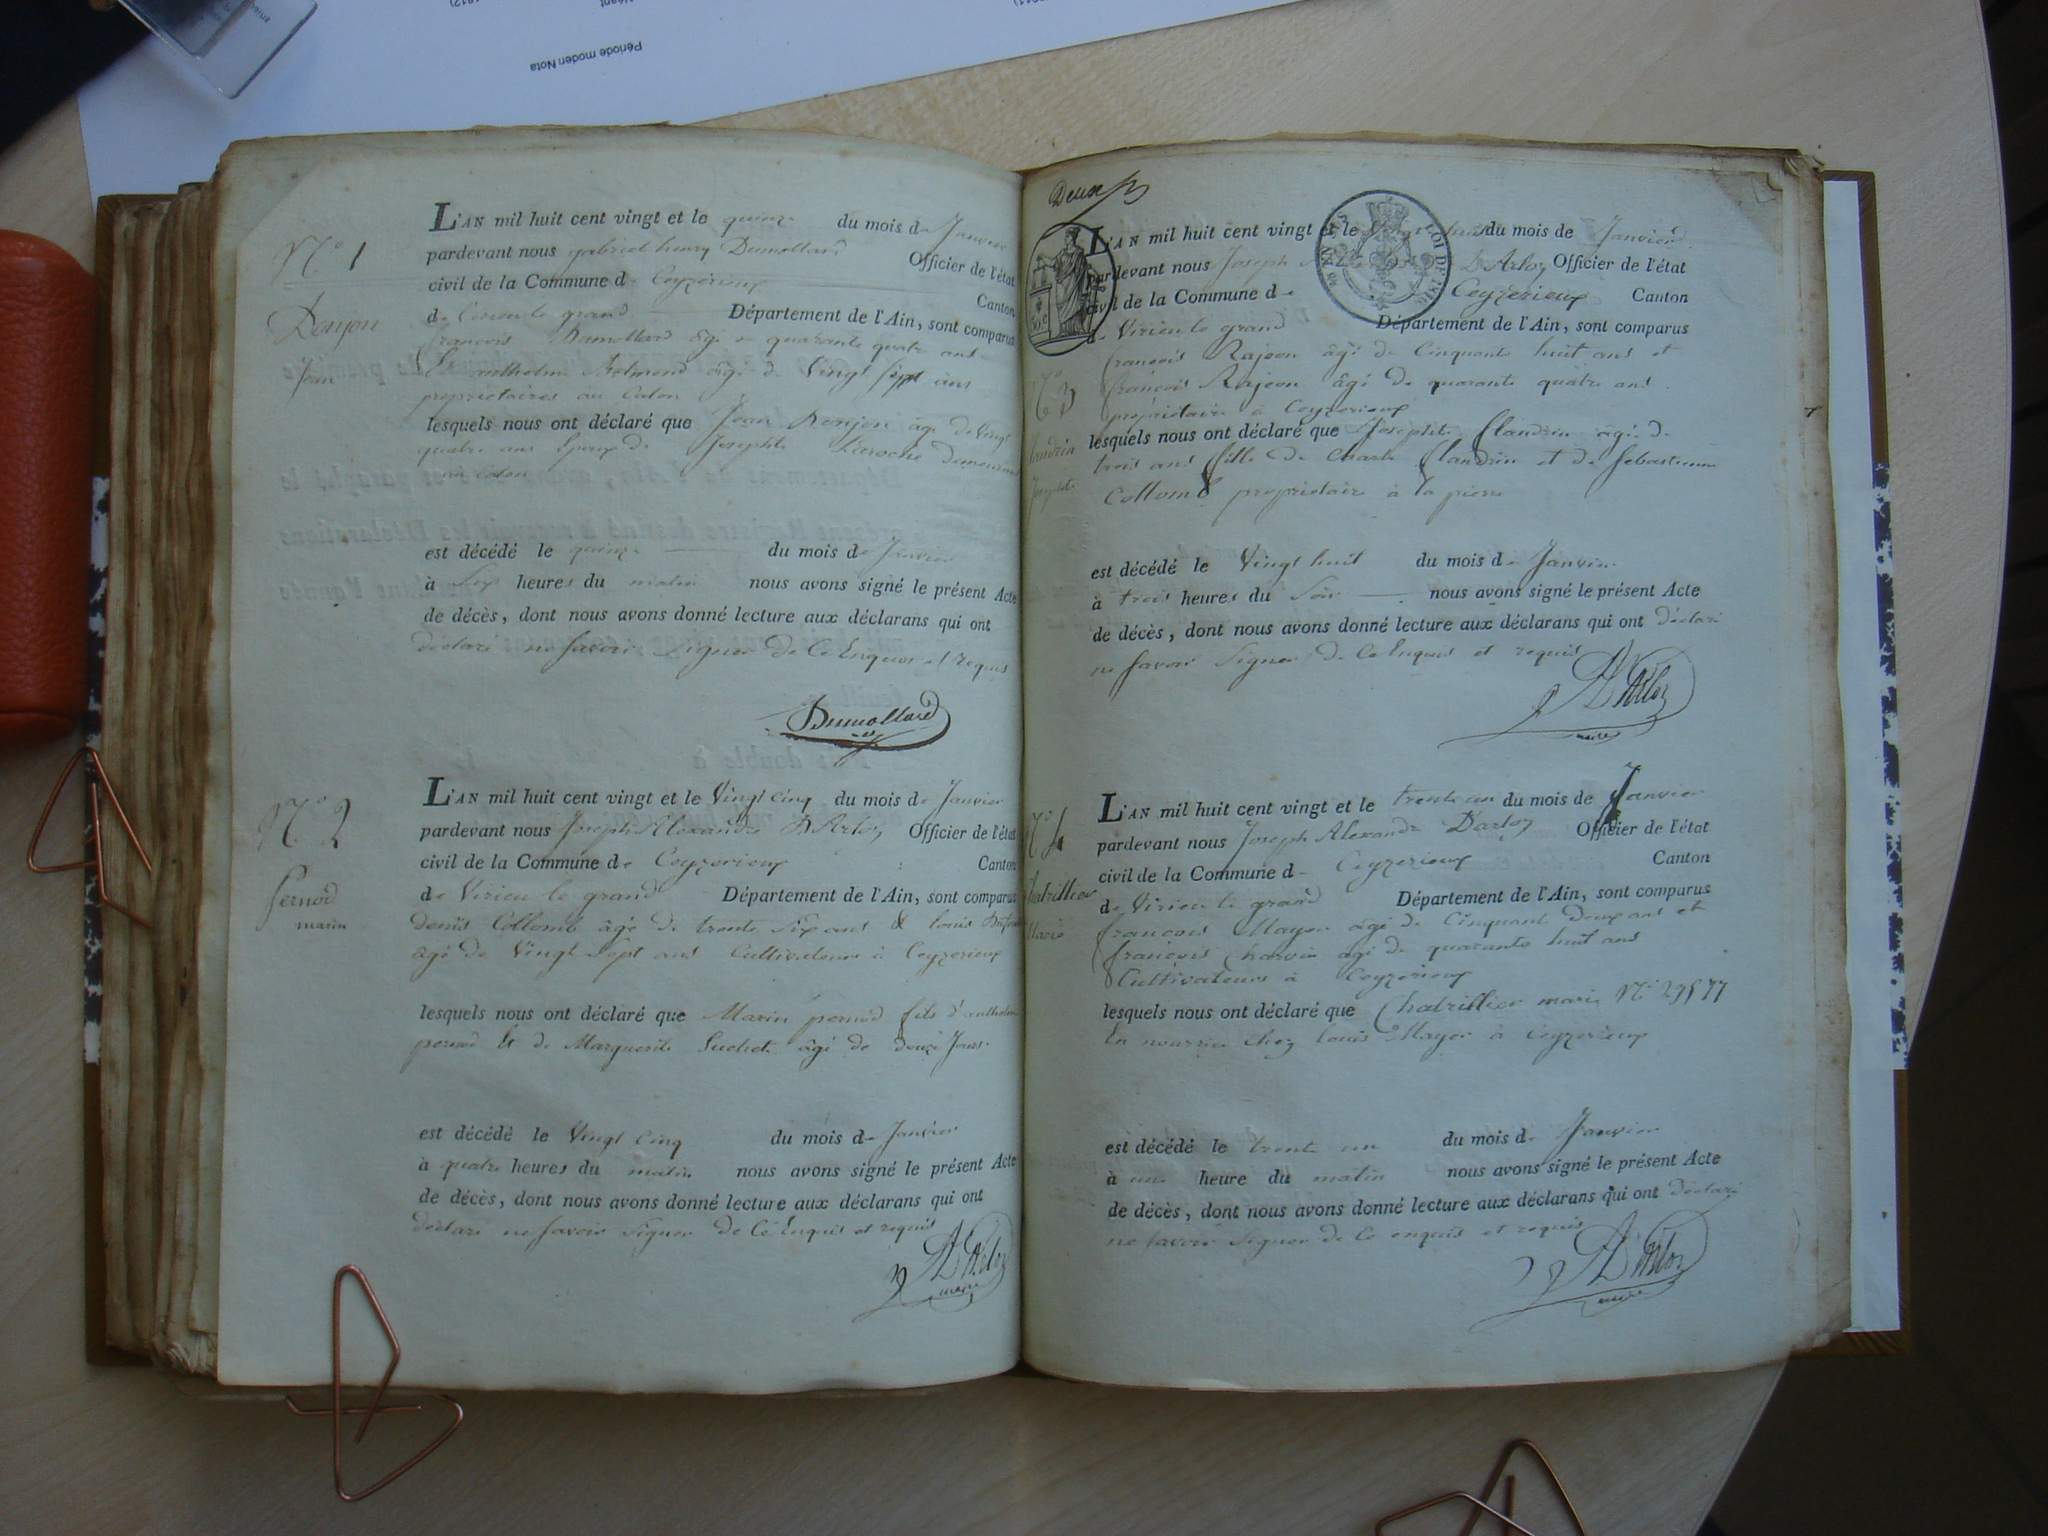 Période moden Nota
N.o 1
Donjon
Jean
L'AN mil huit cent vingt et le quinze du mois de Janvier
pardevant nous gabriel henry Dumollard Officier de l'état
civil de la Commune de Ceyzerieux Canton
de Virieu le grand Département de l'Ain, sont comparus
françois Dumollard âgé de quarante quatre ans
anthelme âgé de Vingt sept ans
proprietaires au Caton
lesquels nous ont déclaré que Jean Donjon âgé de Vingt
quatre ans Epoux de Josephte demeurant
caton
est décédé le quinze du mois de Janvier
à Six heures du matin nous avons signé le présent Acte
de décès, dont nous avons donné lecture aux déclarans qui ont
déclaré ne savoir Signer de Ce Enquis et requis
Dumollard
N.o 2
pernod
marin
L'AN mil huit cent vingt et le Vingt Cinq du mois de Janvier
pardevant nous Joseph Alexandre D'Arloz Officier de l'état
civil de la Commune de Ceyzerieux Canton
de Virieu le grand Département de l'Ain, sont comparus
denis Collomb âgé de trente Six ans & louis
âgé de Vingt Sept ans Cultivateurs à Ceyzerieux
lesquels nous ont déclaré que Marin pernod fils d'anthelme
pernod Et de Marguerite Suchet âgé de douze Jours
est décédé le Vingt Cinq du mois de Janvier
à quatre heures du matin nous avons signé le présent Acte
de décès, dont nous avons donné lecture aux déclarans qui ont
déclaré ne savoir signer de Ce Enquis et requis
D'Arloz
maire
Deux
LOI DE 1816
50 c
N.o 3
flandrin
Josephte
L'AN mil huit cent vingt et le Vingt huit du mois de Janvier
pardevant nous Joseph D'Arloz Officier de l'état
civil de la Commune de Ceyzerieux Canton
de Virieu le grand Département de l'Ain, sont comparus
françois Rajeon âgé de Cinquante huit ans et
françois Rajeon âgé de quarante quatre ans
propriétaire à Ceyzerieux
lesquels nous ont déclaré que Josephte flandrin âgée de
trois ans fille de Charle flandrin et de Sebastienne
Collomb propriétaire à la pierre
est décédé le Vingt huit du mois de Janvier
à trois heures du Soir nous avons signé le présent Acte
de décès, dont nous avons donné lecture aux déclarans qui ont déclaré
ne savoir Signer de Ce Enquis et requis
D'Arloz
maire
N.o 4
Chatrillier
Marie
L'AN mil huit cent vingt et le trente un du mois de Janvier
pardevant nous Joseph Alexandre D'arloz Officier de l'état
civil de la Commune de Ceyzerieux Canton
de Virieu le grand Département de l'Ain, sont comparus
francois Mayer âgé de Cinquante deux ans et
françois Charvin âgé de quarante huit ans
Cultivateurs à Ceyzerieux
lesquels nous ont déclaré que Chatrillier marie N.o 29577
En nourrice chez louis Mayer à Ceyzerieux
est décédé le trente un du mois de Janvier
à une heure du matin nous avons signé le présent Acte
de décès, dont nous avons donné lecture aux déclarans qui ont déclaré
ne savoir signer de Ce enquis et requis
D'Arloz
maire